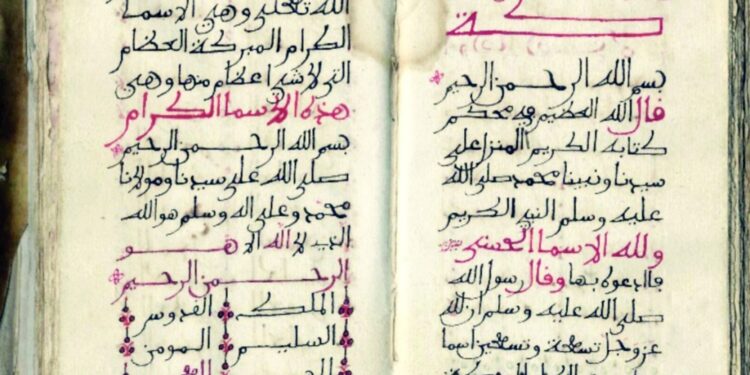 بسم الله الرحمن الرحيم
قال الله العظيم في محكم
كتابه الكريم المنزل على
سيدنا ونبينا محمد صلى الله
عليه وسلم النبي الكريم
ولله الاسما الحسنى
فادعوه بها وقال رسول الله
صلى الله عليه وسلم ان لله
عز وجل تسعة وتسعين اسما
الله تعلى وهي الاسما
الكرام المبركة العظام
التي لا شي اعظام منها وهي
هذه الاسما الكرام
بسم الله الرحمن الرحيم
صلى الله على سيدنا ومولانا
محمد وعلى اله وسلم هو الله
الذي لا اله الا هو
الرحمن الرحيم
الملك القدوس
السليم المومن